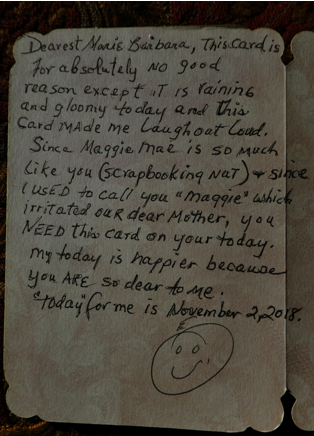 Dearest Marie Barbara, This card is
for absolutely NO good
reason except iT is raining
and gloomy today and this
Card MAde me Laugh out Loud.
Since Maggie Mae is so much
Like you (Scrapbooking NuT) & since
I USED to call you "maggie" which
irritated our dear Mother, you
NEED this card on your today.
my today is happier because
you ARE so dear to me.
"Today" for me is November 2, 2018.